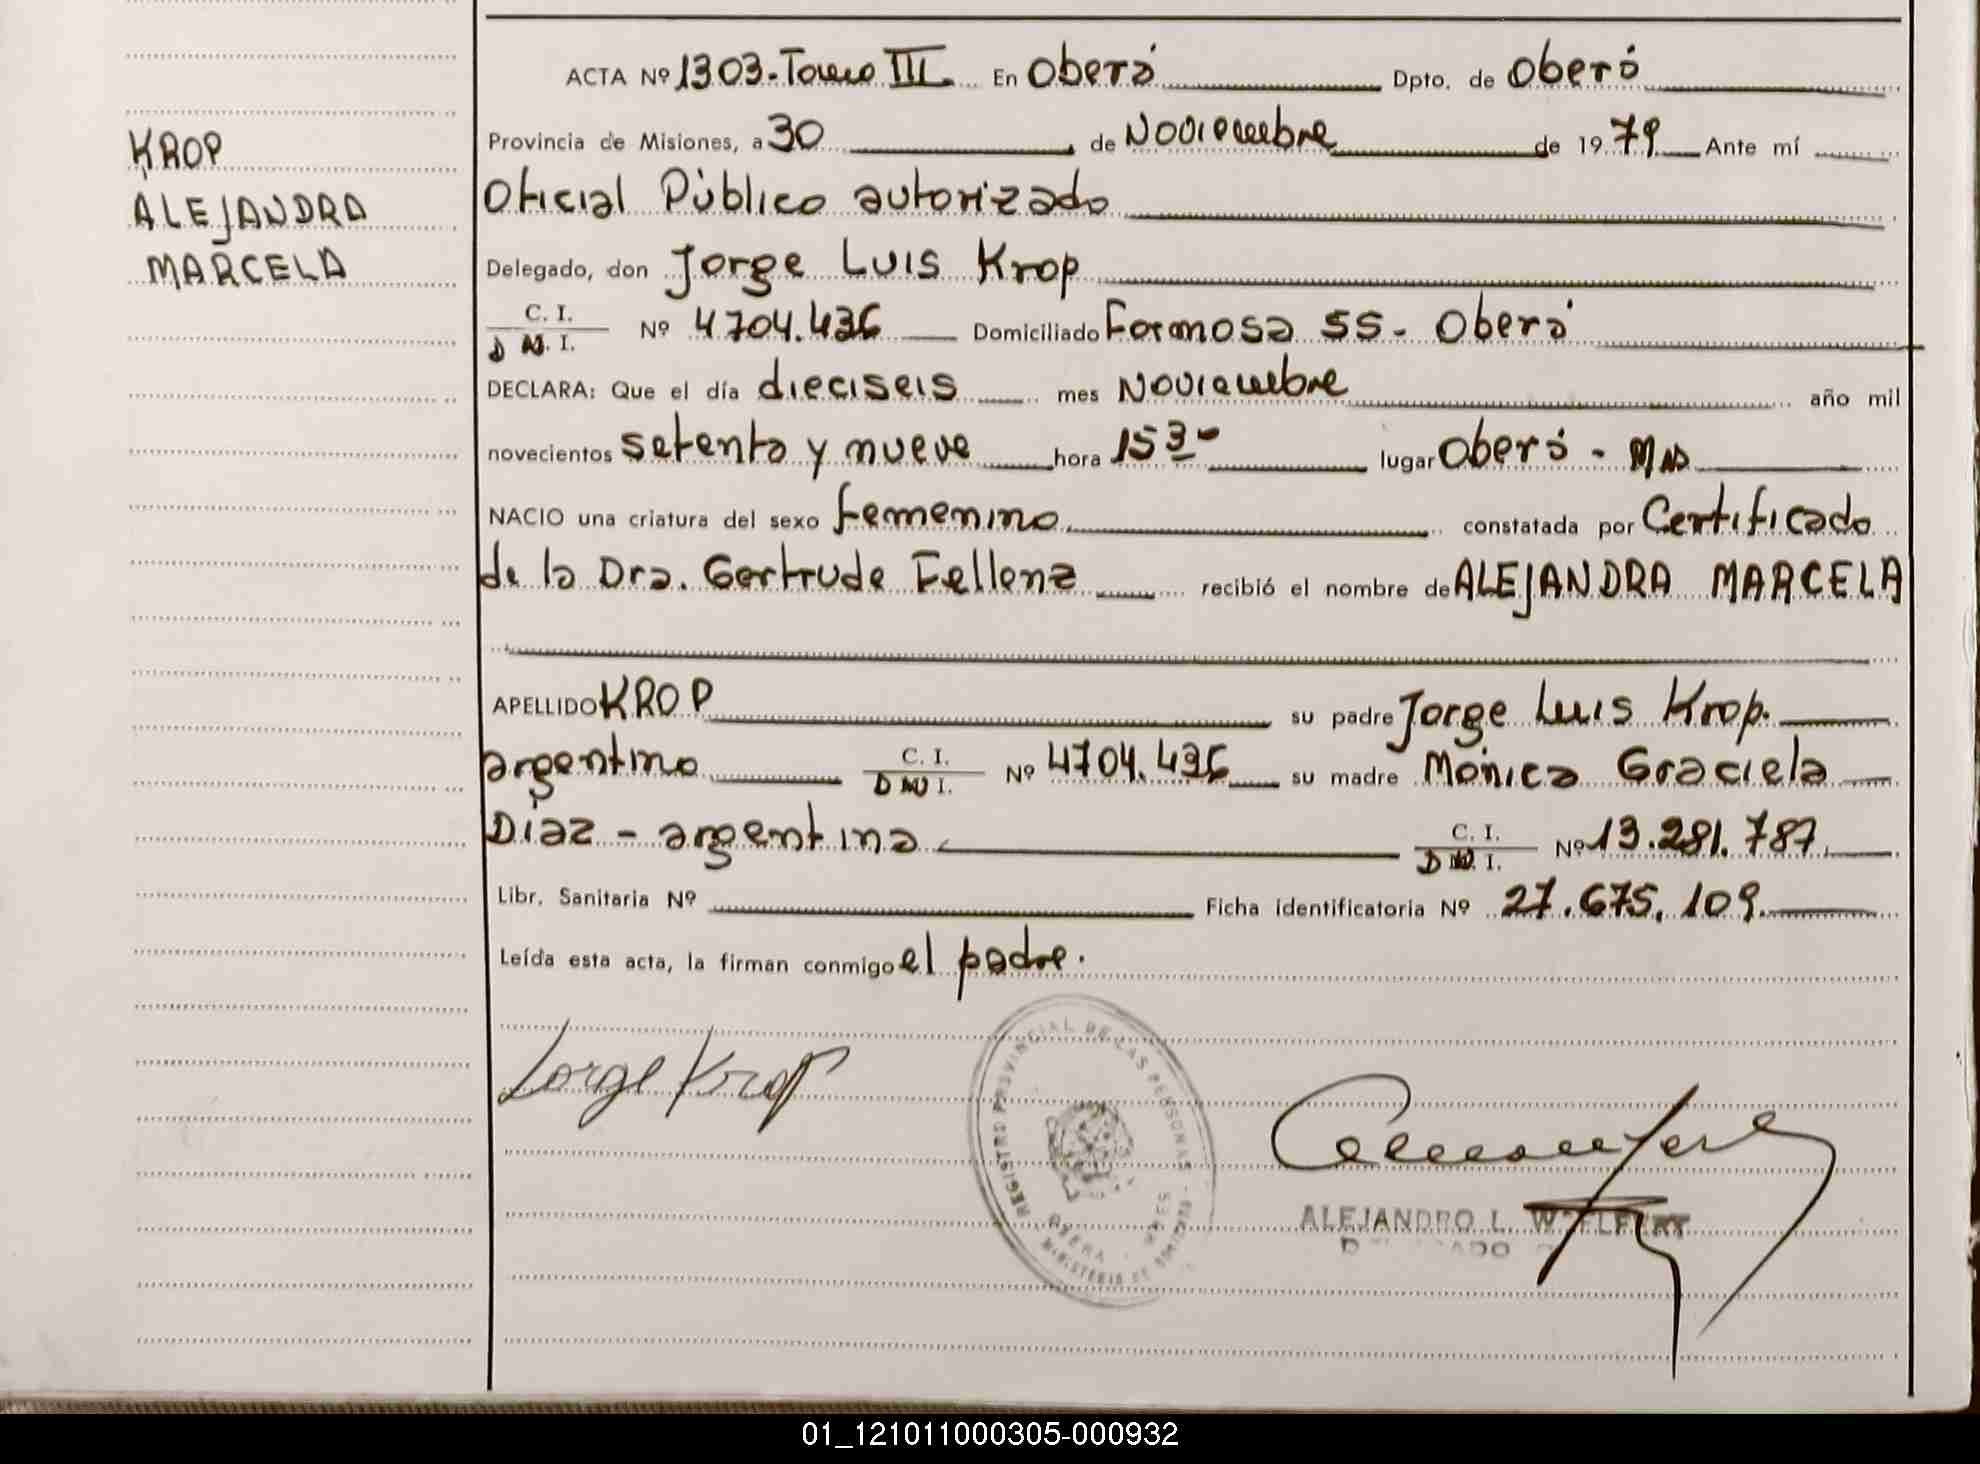 ACTA Nº 1303-Tomo III En Oberá Dpto. de Oberá
Provincia de Misiones, a 30 de Noviembre de 1979 Ante mí
Oficial Público autorizado
Delegado, don Jorge Luis Krop
C. I.
D N. I. Nº 4704.436 Domiciliado Formosa 55- Oberá
DECLARA: Que el día dieciseis mes Noviembre año mil
novecientos setenta y nueve hora 15 30 lugar Oberá - Mns
NACIO una criatura del sexo femenino constatada por Certificado
de la Dra. Gertrude Fellenz recibió el nombre de ALEJANDRA MARCELA
APELLIDO KROP su padre Jorge Luis Krop.
argentino C. I.
D N I. Nº 4704.436 su madre Mónica Graciela
Díaz - argentina C. I.
D N. I. Nº 13.281.787
Libr. Sanitaria Nº Ficha identificatoria Nº 27.675.109.
Leída esta acta, la firman conmigo el padre.
KROP
ALEJANDRA
MARCELA
Jorge Krop
REGISTRO PROVINCIAL DE LAS PERSONAS
OBERA - MNES
MINISTERIO DE GOBIERNO
ALEJANDRO L.
01_121011000305-000932